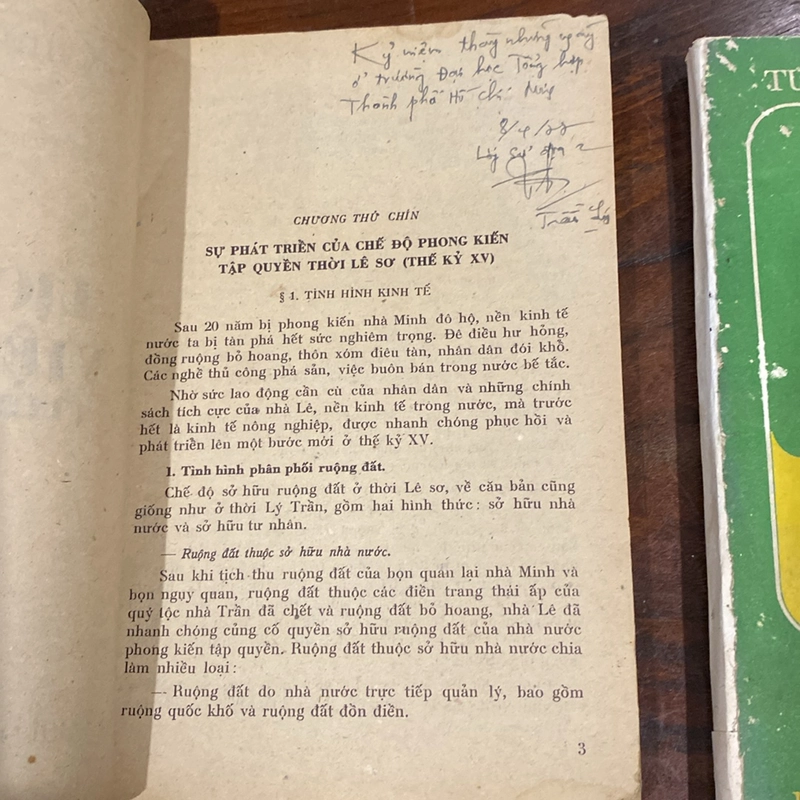 Kỷ niệm tháng những ngày
ở trường Đại học Tổng hợp
Thành phố Hồ Chí Minh
Trần
CHƯƠNG THỨ CHÍN
SỰ PHÁT TRIỂN CỦA CHẾ ĐỘ PHONG KIẾN
TẬP QUYỀN THỜI LÊ SƠ (THẾ KỶ XV)
§ 1. TÌNH HÌNH KINH TẾ
Sau 20 năm bị phong kiến nhà Minh đô hộ, nền kinh tế
nước ta bị tàn phá hết sức nghiêm trọng. Đê điều hư hỏng,
đồng ruộng bỏ hoang, thôn xóm điêu tàn, nhân dân đói khổ.
Các nghề thủ công phá sản, việc buôn bán trong nước bế tắc.
Nhờ sức lao động cần cù của nhân dân và những chính
sách tích cực của nhà Lê, nền kinh tế trong nước, mà trước
hết là kinh tế nông nghiệp, được nhanh chóng phục hồi và
phát triển lên một bước mới ở thế kỷ XV.
1. Tình hình phân phối ruộng đất.
Chế độ sở hữu ruộng đất ở thời Lê sơ, về căn bản cũng
giống như ở thời Lý Trần, gồm hai hình thức: sở hữu nhà
nước và sở hữu tư nhân.
— Ruộng đất thuộc sở hữu nhà nước.
Sau khi tịch thu ruộng đất của bọn quan lại nhà Minh và
bọn ngụy quan, ruộng đất thuộc các điền trang thái ấp của
quý tộc nhà Trần đã chết và ruộng đất bỏ hoang, nhà Lê đã
nhanh chóng củng cố quyền sở hữu ruộng đất của nhà nước
phong kiến tập quyền. Ruộng đất thuộc sở hữu nhà nước chia
làm nhiều loại:
— Ruộng đất do nhà nước trực tiếp quản lý, bao gồm
ruộng quốc khố và ruộng đất đồn điền.
3